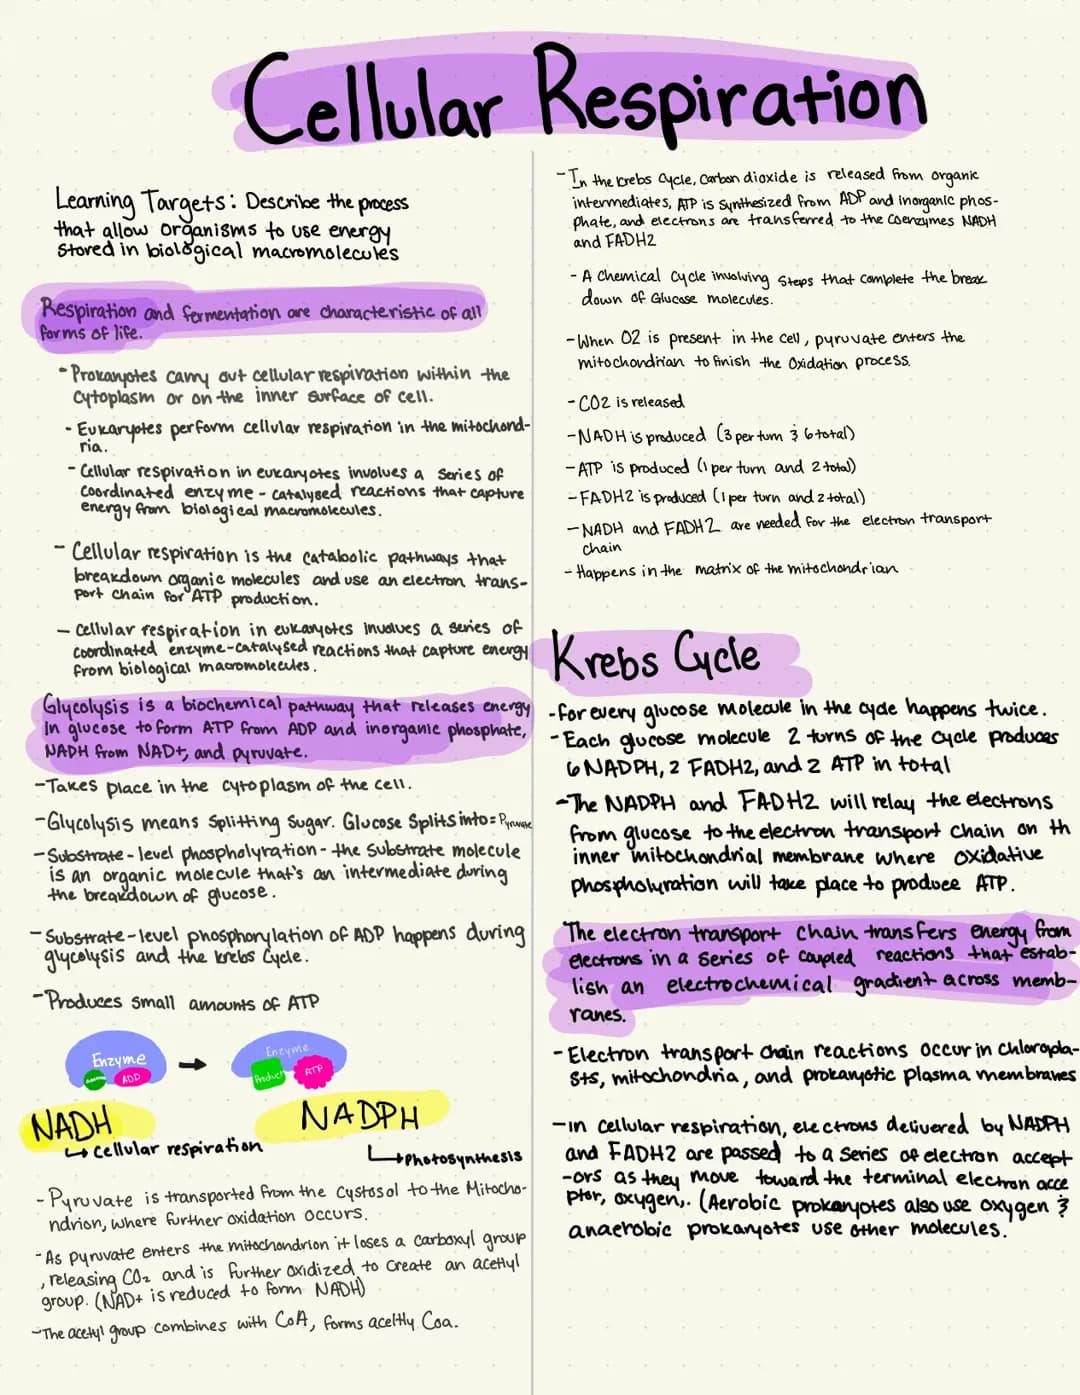 Cellular Respiration
Learning Targets: Describe the process
that allow organisms to use energy
stored in biological macromolecules
Respiration and fermentation are characteristic of all
forms of life.
- Prokaryotes carry out cellular respiration within the
cytoplasm or on the inner surface of cell.
- Eukaryotes perform cellular respiration in the mitochond-
ria.
- Cellular respiration in eukaryotes involves a series of
coordinated enzyme-catalysed reactions that capture
energy from biological macromolecules.
- Cellular respiration is the catabolic pathways that
breakdown organic molecules and use an electron trans-
port chain for ATP production.
- Cellular respiration in eukaryotes involves a series of
coordinated enzyme-catalysed reactions that capture energy
from biological macromolecules.
Glycolysis is a biochemical pathway that releases energy
in glucose to form ATP from ADP and inorganic phosphate,
NADH from NAD+, and pyruvate.
- Takes place in the cytoplasm of the cell.
- Glycolysis means splitting sugar. Glucose splits into = Pyruvate
- Substrate-level phospholyration - the substrate molecule
is an organic molecule that's an intermediate during
the breakdown of glucose.
- Substrate-level phosphorylation of ADP happens during
glycolysis and the krebs cycle.
- Produces small amounts of ATP
Enzyme
ADD
Enzyme
Product
ATP
NADH
Cellular respiration
NADPH
Photosynthesis
- Pyruvate is transported from the cystosol to the Mitocho-
ndrion, where further oxidation occurs.
- As pyruvate enters the mitochondrion it loses a carboxyl group
, releasing CO2 and is further oxidized to create an acetlyl
group. (NAD+ is reduced to form NADH)
- The acetyl group combines with CoA, forms aceltly Coa.
- In the krebs cycle, Carbon dioxide is released from organic
intermediates, ATP is synthesized from ADP and inorganic phos-
phate, and electrons are transferred to the coenzymes NADH
and FADH2
- A chemical cycle involving steps that complete the break
down of Glucose molecules.
- When O2 is present in the cell, pyruvate enters the
mitochondrian to finish the oxidation process.
- CO2 is released
- NADH is produced (3 per turn & 6 total)
- ATP is produced (1 per turn and 2 total)
- FADH2 is produced (1 per turn and 2 total)
- NADH and FADH2 are needed for the electron transport
chain
- Happens in the matrix of the mitochondrian
Krebs Cycle
- for every glucose molecule in the cycle happens twice.
- Each glucose molecule 2 turns of the cycle produces
6 NADPH, 2 FADH2, and 2 ATP in total
- The NADPH and FADH2 will relay the electrons
from glucose to the electron transport chain on th
inner mitochondrial membrane where oxidative
phospholyration will take place to producee ATP.
The electron transport chain transfers energy from
electrons in a series of coupled reactions that estab-
lish an electrochemical gradient across memb-
ranes.
- Electron transport chain reactions occur in chloropla-
sts, mitochondria, and prokaryotic plasma membranes
- in cellular respiration, electrons delivered by NADPH
and FADH2 are passed to a series of electron accept
-ors as they move toward the terminal electron acce
ptor, oxygen,. (Aerobic prokaryotes also use oxygen &
anaerobic prokaryotes use other molecules.